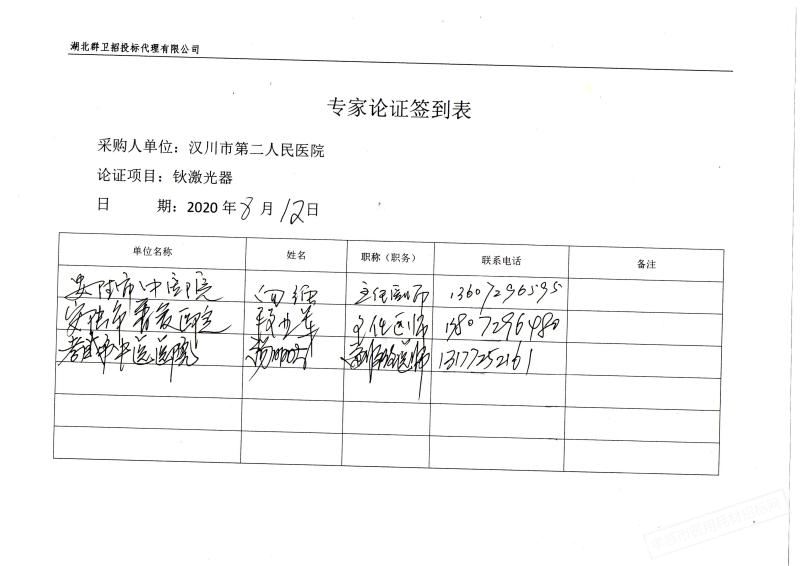 湖北群卫招投标代理有限公司
专家论证签到表
采购人单位：汉川市第二人民医院
论证项目：钬激光器
日 期：2020年8月12日
单位名称 姓名 职称（职务） 联系电话 备注
安陆市中医院 主任医师 13607296595
安陆市普爱医院 主任医师 13807296480
孝感市中医医院 副主任医师 13177252161
孝感市医用耗材招标网